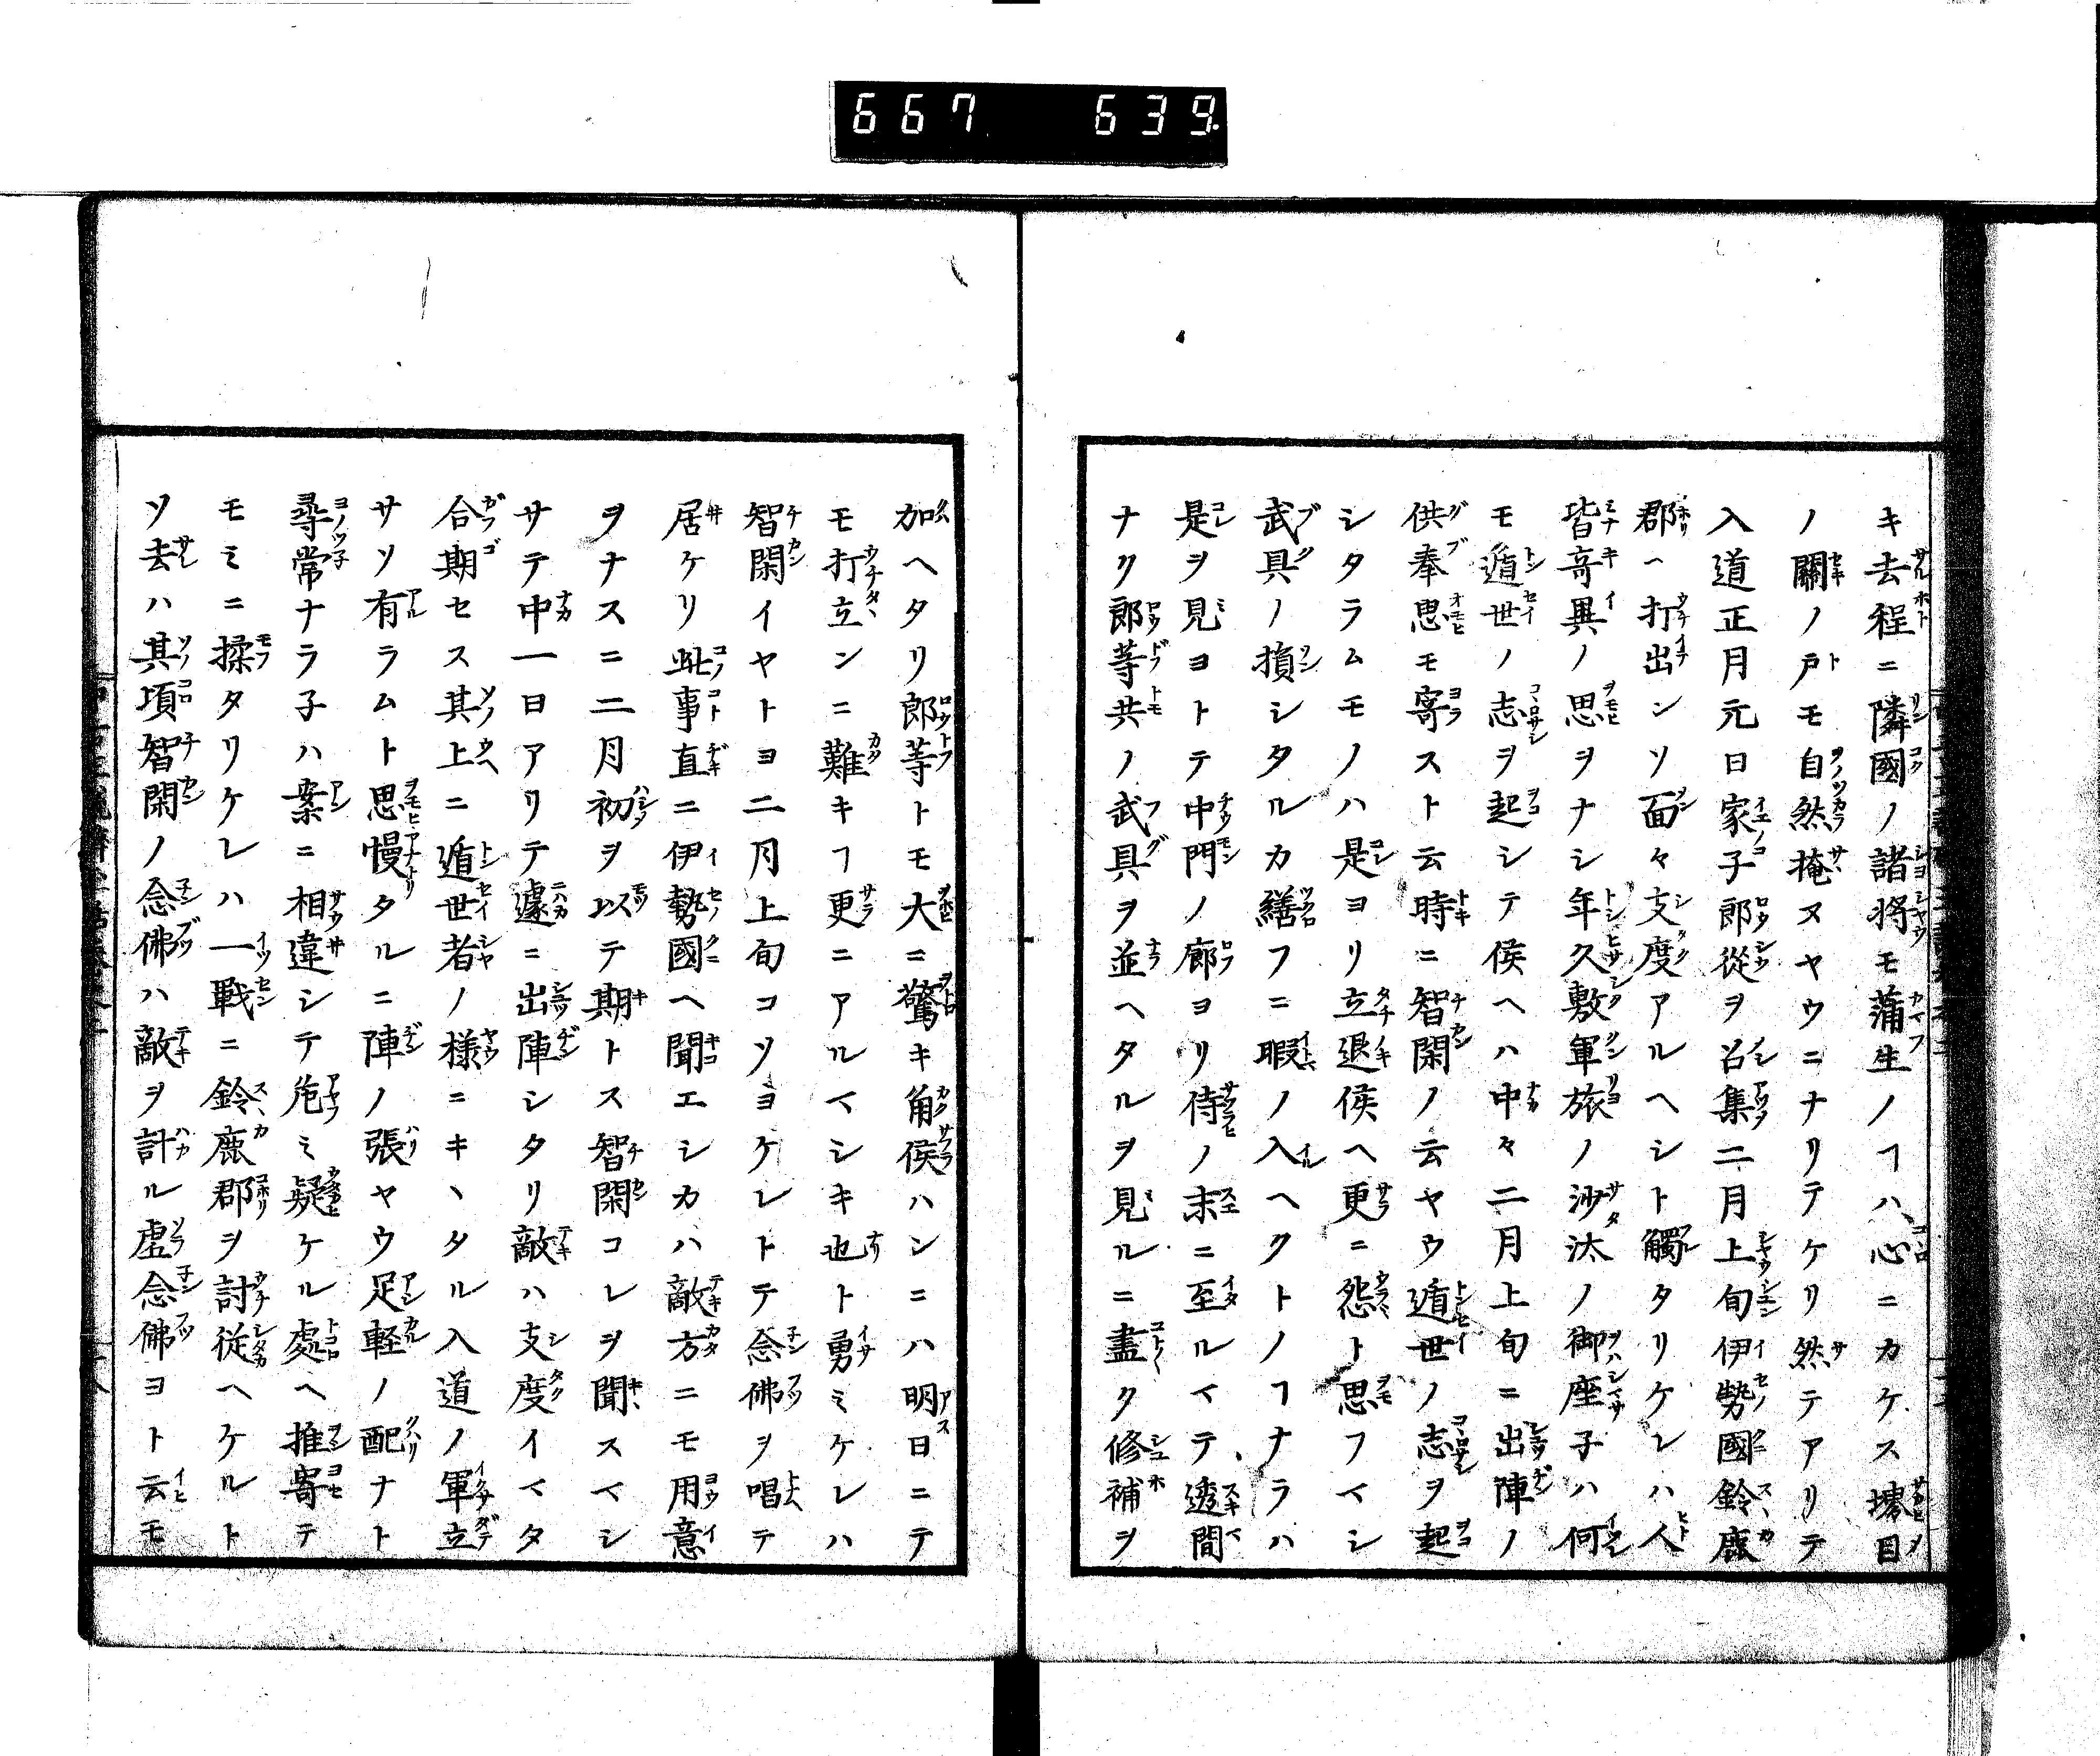 667 639
キ去程ニ隣國ノ諸将モ蒲生ノヿハ心ニカケス壗目
ノ關ノ戸モ自然掩ヌヤウニナリテケリ然テアリテ
入道正月元日家子郎從ヲ召集二月上旬伊勢國鈴鹿
郡ヘ打出ンソ面々支度アルヘシト觸タリケレハ人
皆奇異ノ思ヲナシ年久敷軍旅ノ沙汰ノ御座子ハ何
モ遁世ノ志ヲ起シテ侯ヘハ中々二月上旬ニ出陣ノ
供奉思モ寄ストム云時ニ智閑ノ云ヤウ遁世ノ志ヲ起
シタラムモノハ是ヨリ立退侯ヘ更ニ怨ト思フヘシ
武具ノ損シタルカ繕フニ暇ノ入ヘクトノヿナラハ
是ヲ見ヨトテ中門ノ廊ヨリ侍ノ末ニ至ルマテ透間
ナク郎等共ノ武具ヲ並ヘタルヲ見ルニ盡ク修補ヲ
加ヘタリ郎等トモ大ニ驚キ角侯ハンニハ明日ニテ
モ打立ンニ難キヿ更ニアルマシキ也ト勇ミケレハ
智閑イヤトヨ二月上旬コソヨケレトテ念佛ヲ唱テ
居ケリ此事直ニ伊勢國ヘ聞エシカハ敵方ニモ用意
ヲナスニ二月初ヲ以テ期トス智閑コレヲ聞スマシ
サテ中一日アリテ遽ニ出陣シタリ敵ハ支度イマタ
合期セス其上ニ遁世者ノ様ニキヽタル入道ノ軍立
サソ有ラムト思慢タルニ陣ノ張ヤウ足軽ノ配ナト
尋常ナラ子ハ案ニ相違シテ危ミ疑ケル處ヘ推寄テ
モミニ揉タリケレハ一戰ニ鈴鹿郡ヲ討從ヘケルト
ソ去ハ其項智閑ノ念佛ハ敵ヲ計ル虚念佛ヨト云モ